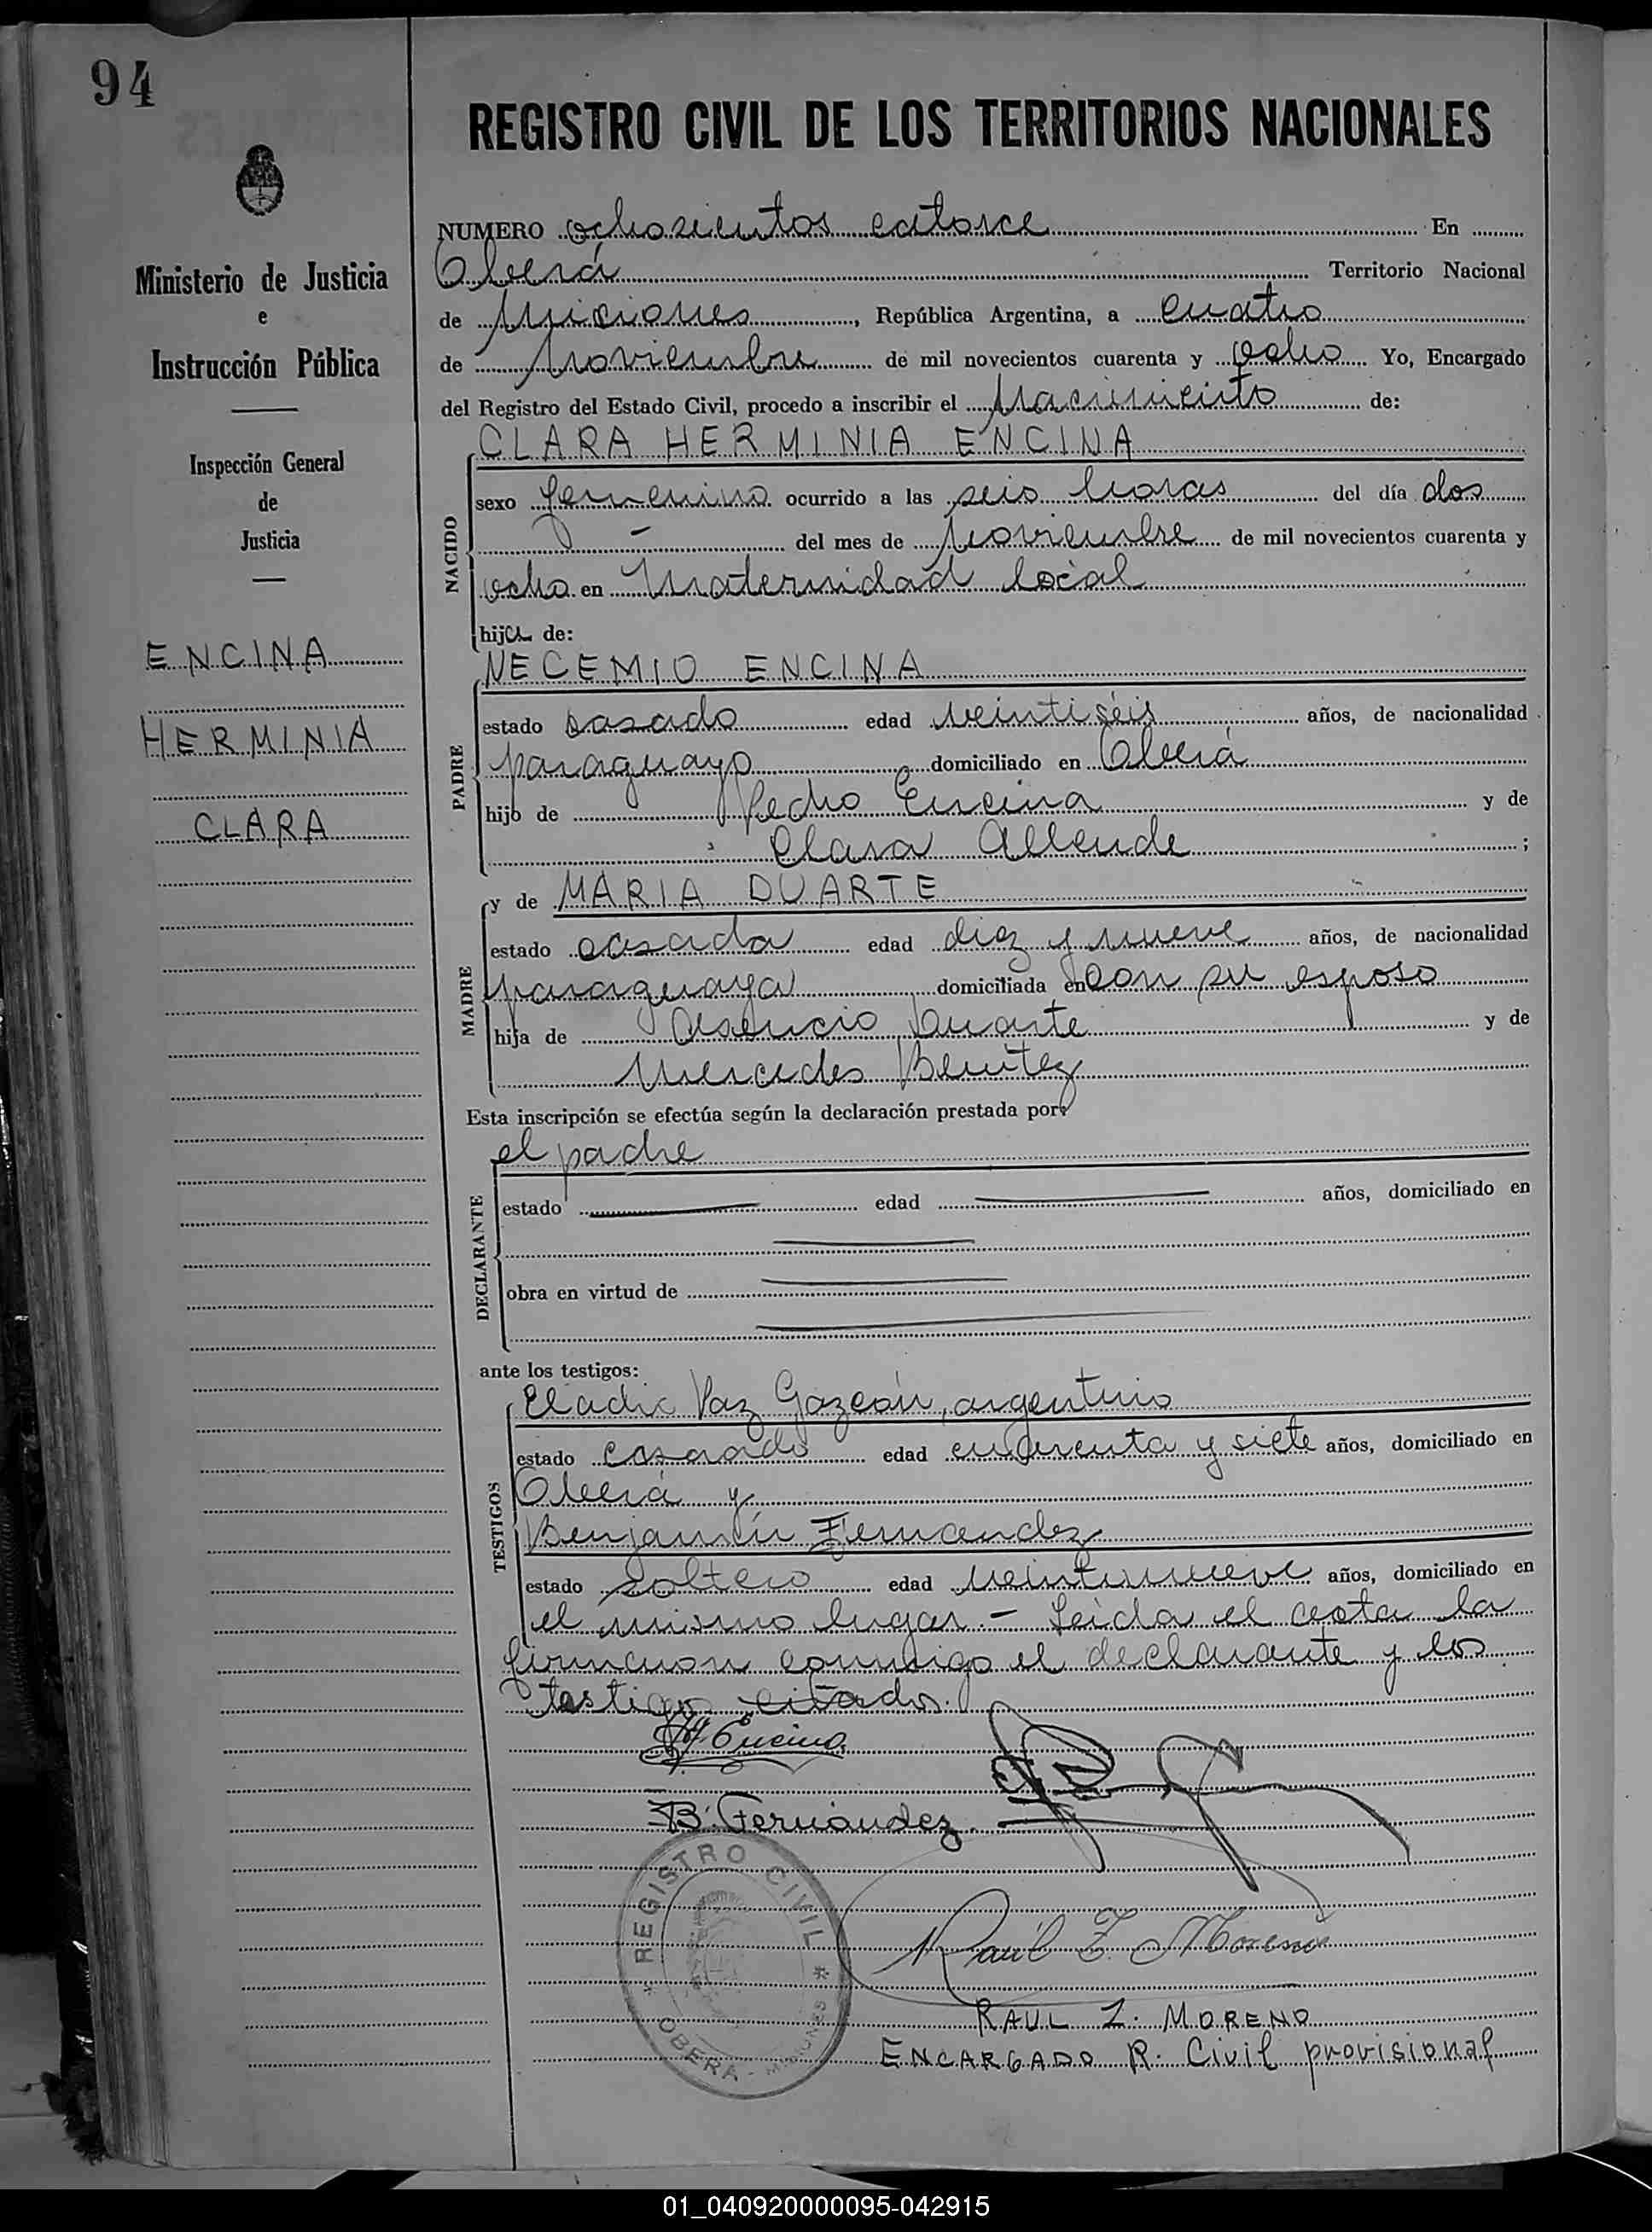 94
REGISTRO CIVIL DE LOS TERRITORIOS NACIONALES
Ministerio de Justicia
e
Instrucción Pública
Inspección General
de
Justicia
ENCINA
HERMINIA
CLARA
NUMERO ochosientos catorce En
Oberá Territorio Nacional
de Misiones, República Argentina, a cuatro
de Noviembre de mil novecientos cuarenta y ocho Yo, Encargado
del Registro del Estado Civil, procedo a inscribir el Nacimiento de:
CLARA HERMINIA ENCINA
NACIDO
sexo femenino ocurrido a las seis horas del día dos
— del mes de Noviembre de mil novecientos cuarenta y
ocho en Maternidad local
hija de:
NECEMIO ENCINA
PADRE
estado casado edad veintiséis años, de nacionalidad
paraguayo domiciliado en Oberá
hijo de Pedro Encina y de
Clara Allende ;
y de MARIA DUARTE
MADRE
estado casada edad diez y nueve años, de nacionalidad
paraguaya domiciliada en con su esposo
hija de Asencio Duarte y de
Mercedes Benítez
Esta inscripción se efectúa según la declaración prestada por:
el padre
DECLARANTE
estado edad años, domiciliado en
obra en virtud de
ante los testigos:
Eladio Vaz Gazcón, argentino
TESTIGOS
estado casado edad cuarenta y siete años, domiciliado en
Oberá y
Benjamín Fernandez
estado soltero edad veintinueve años, domiciliado en
el mismo lugar.- Leída el acta la
firmaron conmigo el declarante y los
testigos citados.
Encina
B. Fernández.
REGISTRO CIVIL
OBERA - MISIONES
Raúl Z. Moreno
RAUL Z. MORENO
ENCARGADO R. Civil provisional
01_040920000095-042915